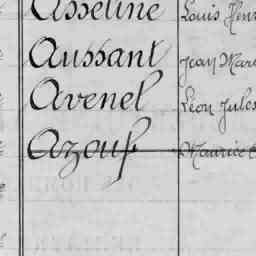 Asseline Louis Henr
Aussant Jean Mar
Avenel Léon Jules
Azouf Maurice